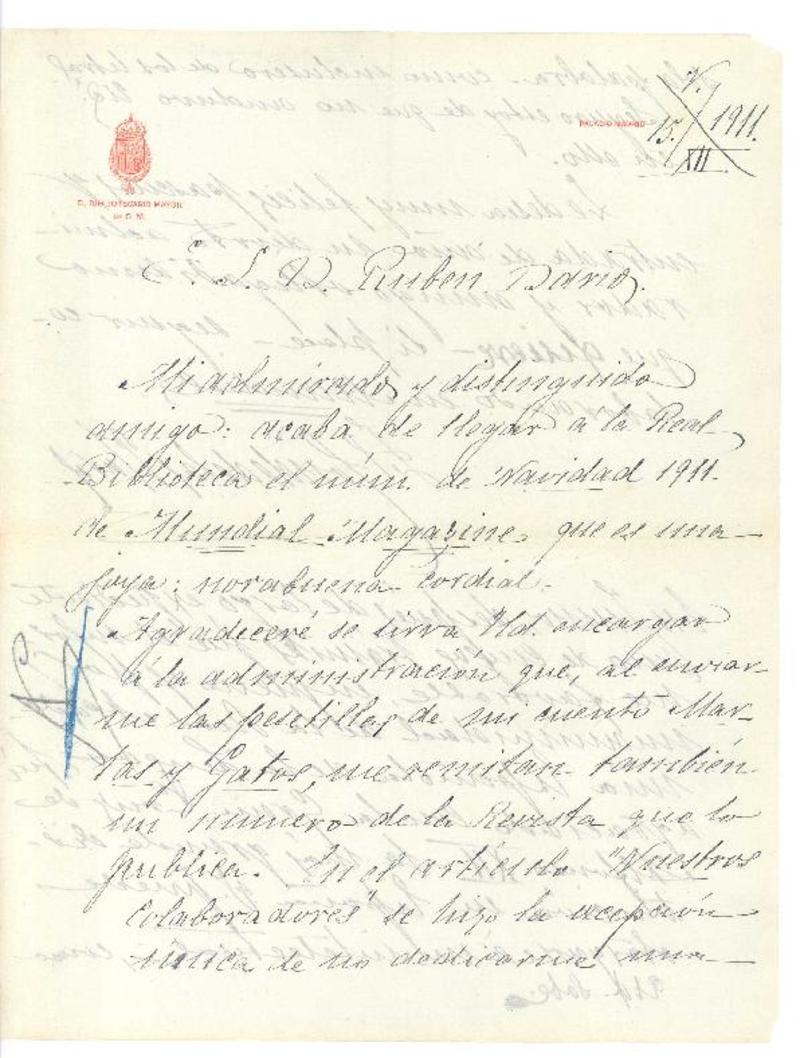 EL BIBLIOTECARIO MAYOR
DE S. M.
PALACIO MADRID
15 XII 1911.
E. S. D. Ruben Dario.
Mi admirado y distinguido
amigo: acaba de llegar a la Real
Biblioteca el núm. de Navidad 1911.
de Mundial Magazine, que es una
joya: norabuena cordial.
Agradeceré se sirva Ud. encargar
á la administración que, al enviar-
me las pesetillas de mi cuento Mar-
tas y Gatos, me remitan también
un numero de la Revista que lo
publica. En el artículo "Nuestros
Colaboradores" se hizo la ecepción
única de no dedicarme una